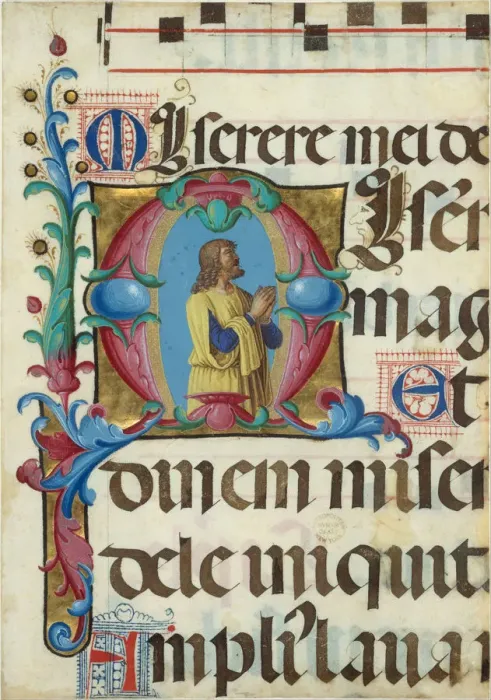 MIserere mei de
MIsēr
mag
Et
dinem miser
dele iniquit
Ampliꝰ laua